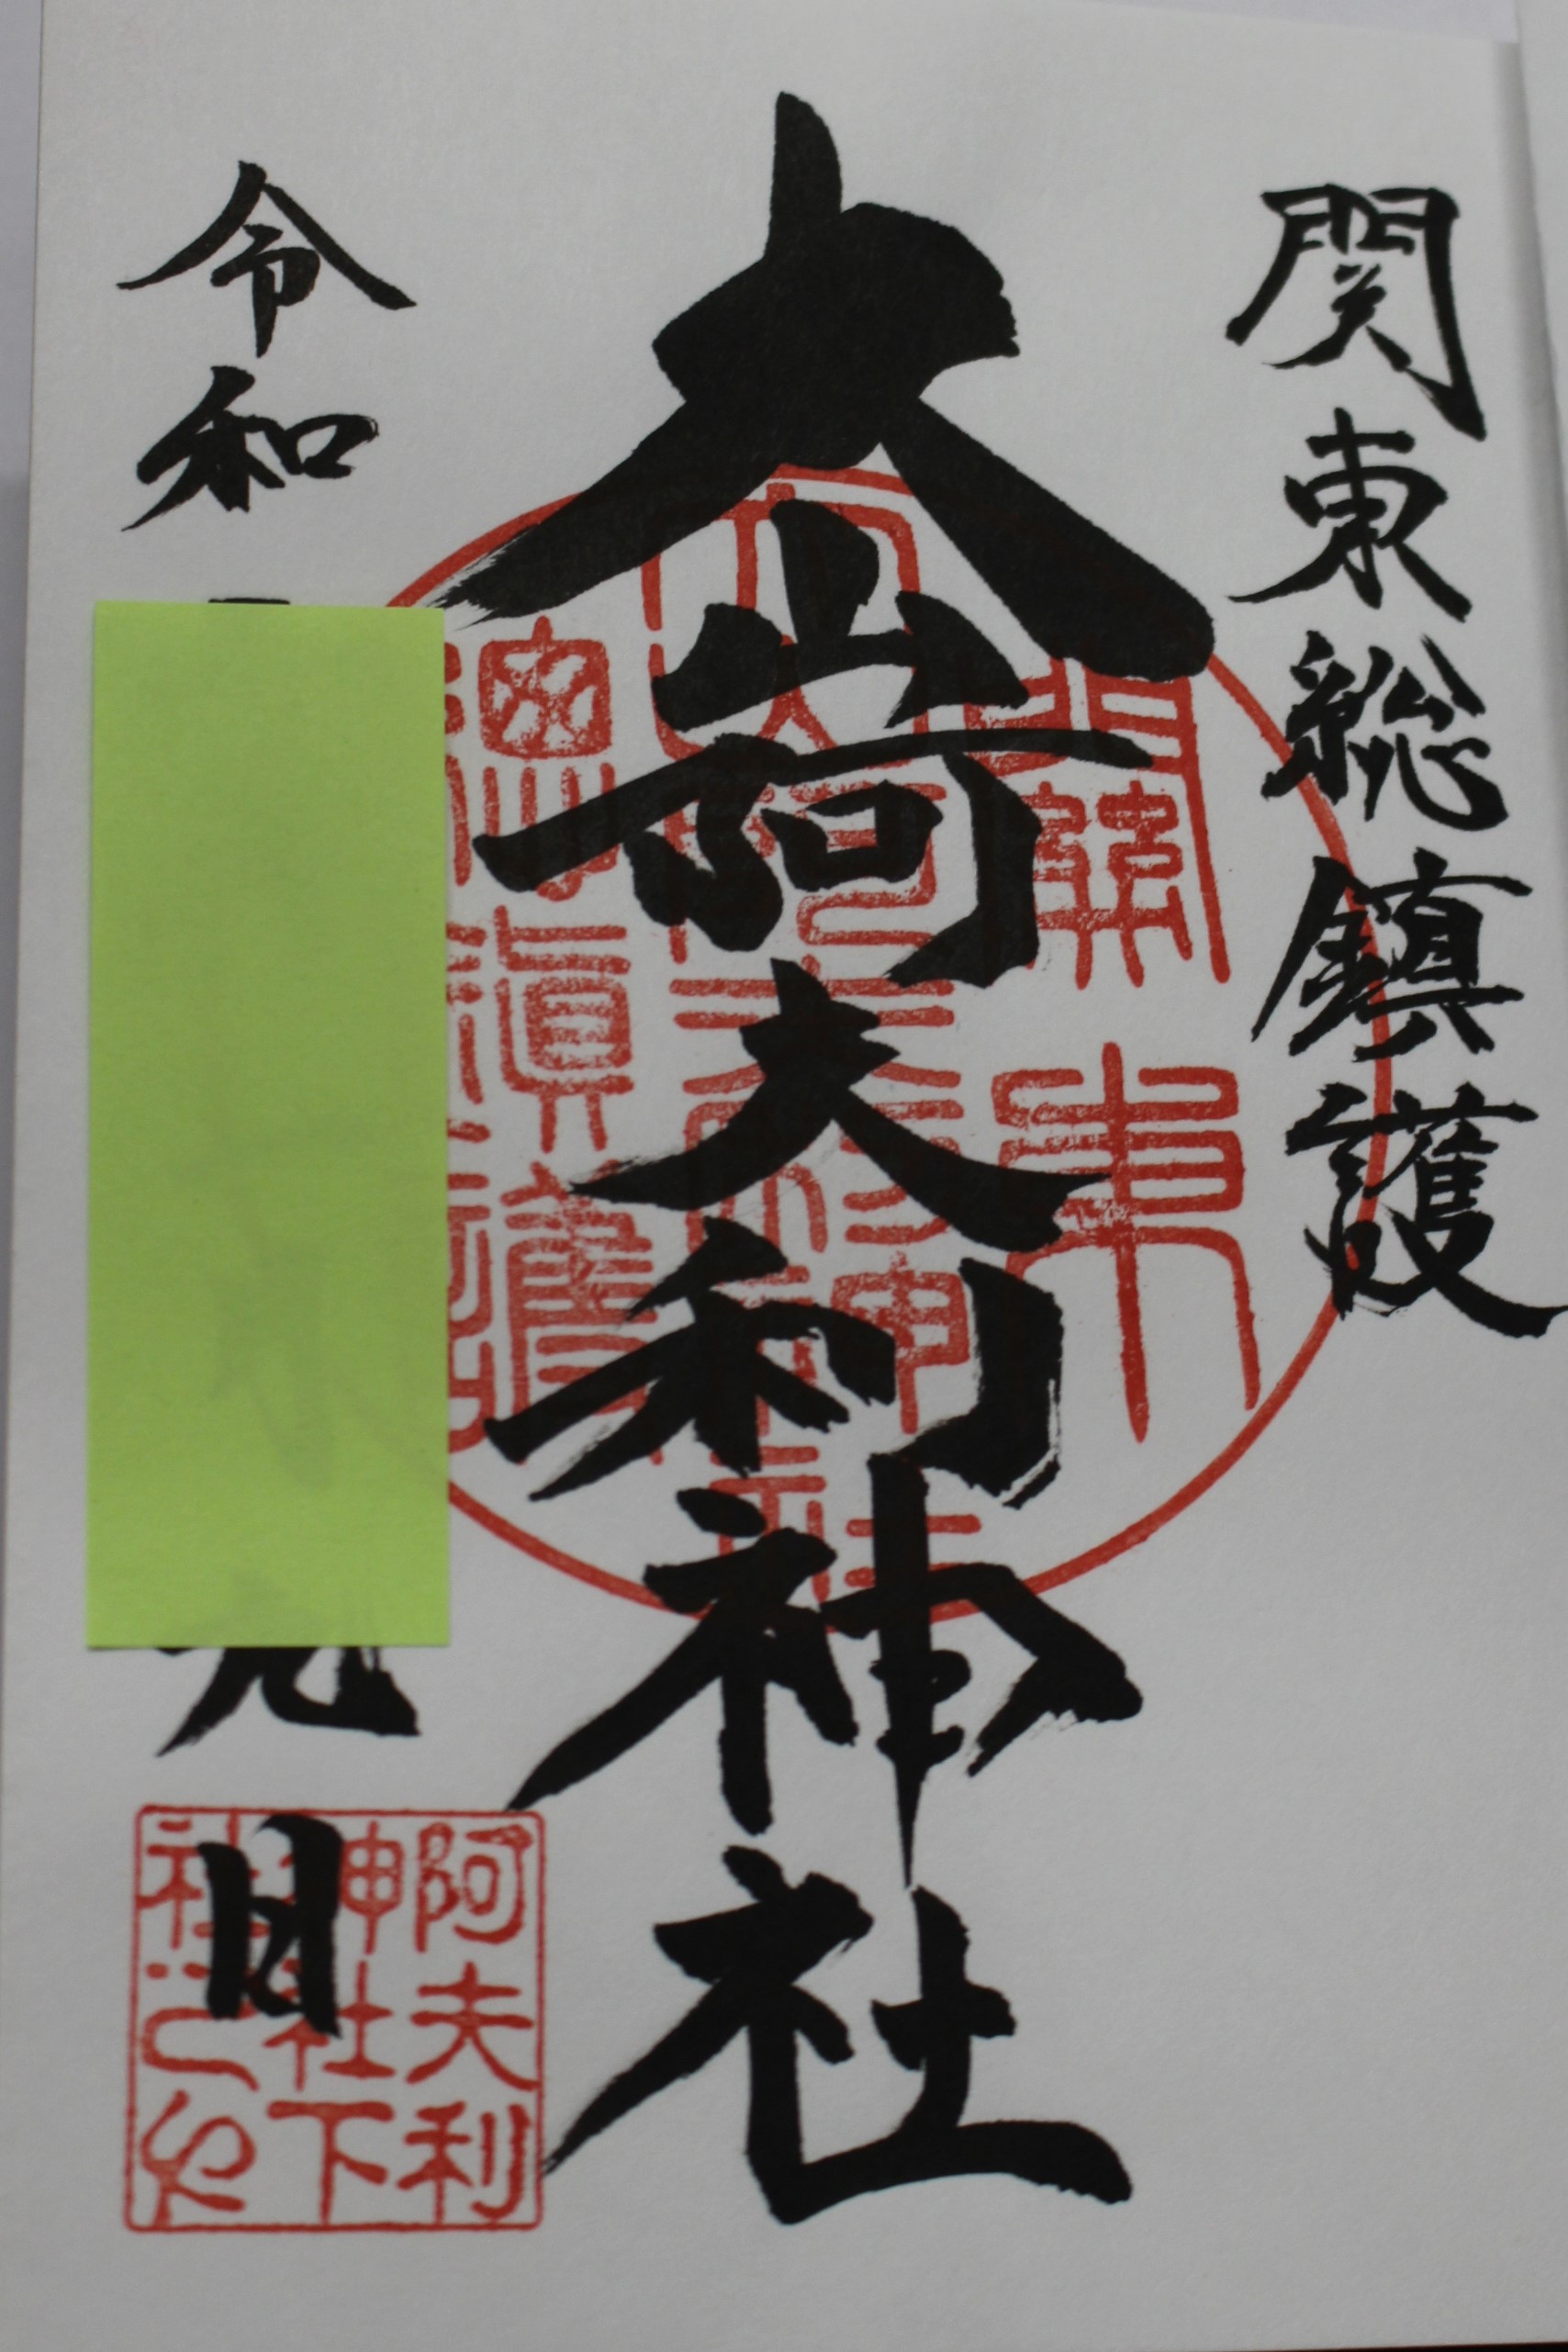 関東総鎮護
大山阿夫利神社
令和
日
關東
大山阿夫利神社
總鎮護
阿夫利
神社下
社之印